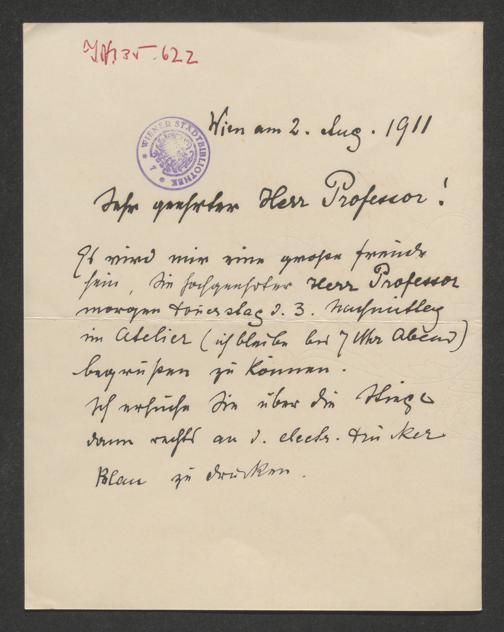 IN 35.622
WIENER STADTBIBLIOTHEK
Wien am 2. Aug. 1911
Sehr geehrter Herr Professor!
Es wird mir eine große freude
sein, Sie hochgeehrter Herr Professor
morgen Donerstag d. 3. Nachmittag
im Atelier (ich bleibe bis 7 Uhr Abend)
begrüßen zu können.
Ich ersuche Sie über die Stiege
dann rechts an d. electr. Drucker
Blau zu drucken.